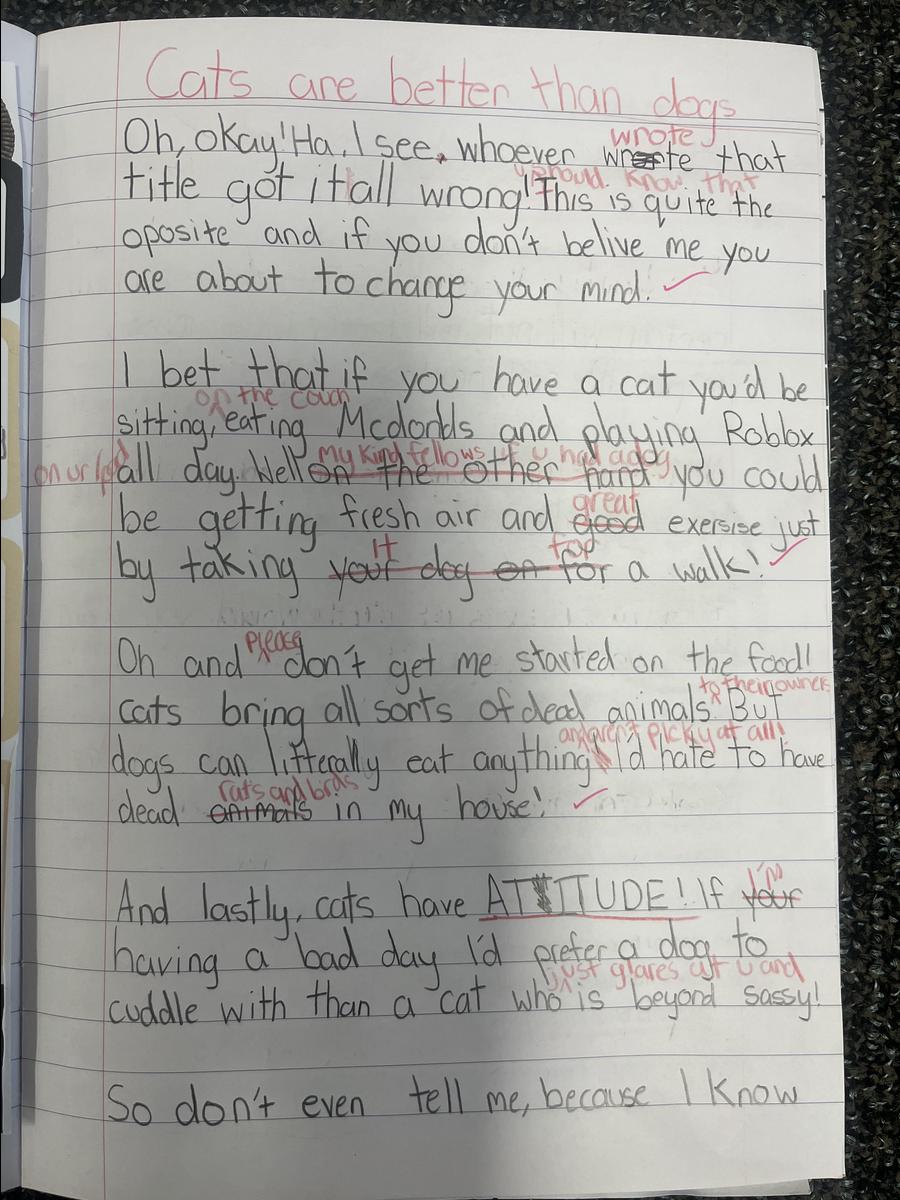 Cats are better than dogs
Oh, okay! Ha, I see, whoever wrote that
wrote
title got it all wrong! This is quite the
u should know that
oposite and if you don't belive me you
are about to change your mind.
I bet that if you have a cat you'd be
on the couch
sitting, eating Mcdonlds and playing Roblox
my kind fellows if u had a dog
all day. Well on the other hand you could
great
be getting fresh air and good exersise just
it
by taking your dog on for a walk!
Oh and please don't get me started on the food!
to their owners
cats bring all sorts of dead animals. But
and aren't picky at all!
dogs can litterally eat anything I'd hate to have
rats and birds
dead animals in my house!
And lastly, cats have ATTITUDE! If your
I'm
having a bad day I'd prefer a dog to
just glares at u and
cuddle with than a cat who is beyond sassy!
So don't even tell me, because I know